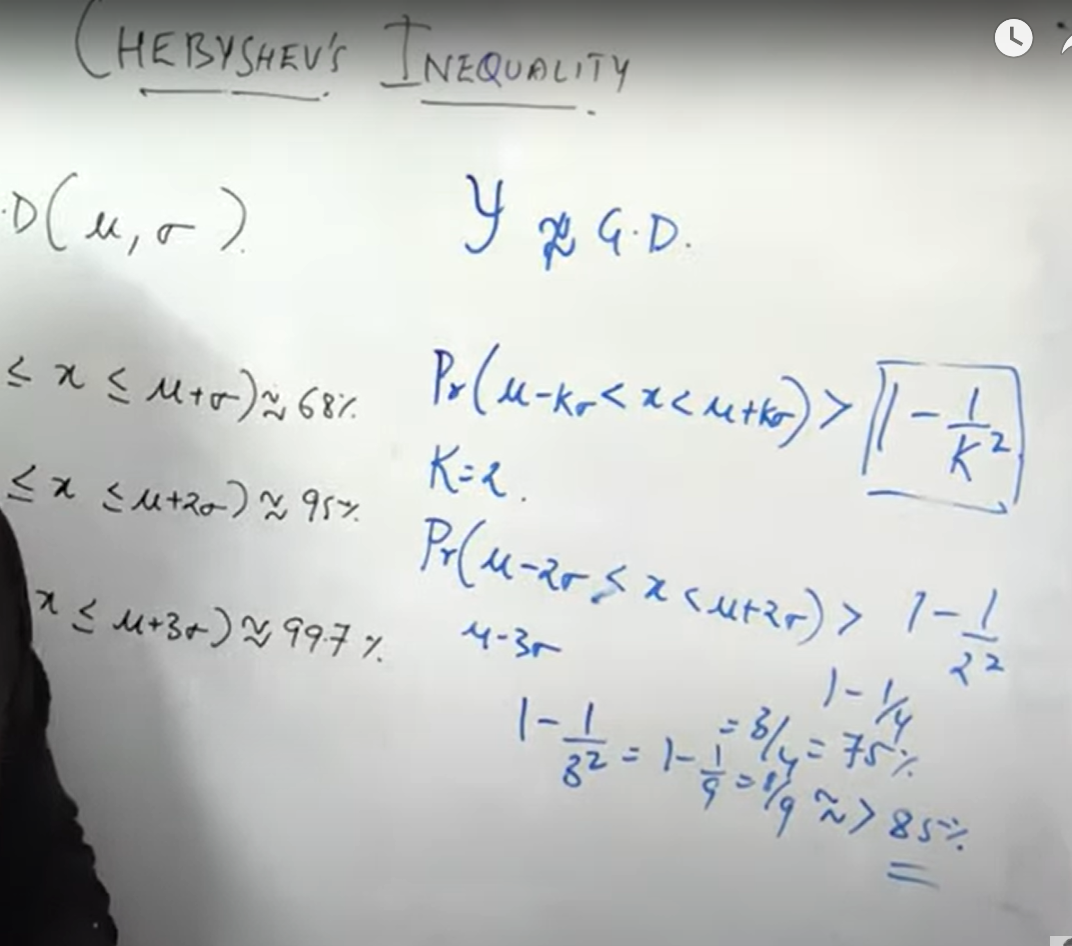 CHEBYSHEV'S INEQUALITY
.D(μ, σ).
≤ x ≤ μ+σ) ≈ 68%
≤ x ≤ μ+2σ) ≈ 95%
x ≤ μ+3σ) ≈ 99.7%
Y ≉ G.D.
Pr(μ-kσ < x < μ+kσ) > 1 - 1/K²
K=2.
Pr(μ-2σ ≤ x < μ+2σ) > 1 - 1/2²
μ-3σ
1 - 1/4
= 3/4 = 75%
1 - 1/3² = 1 - 1/9 = 8/9 ≈> 85%